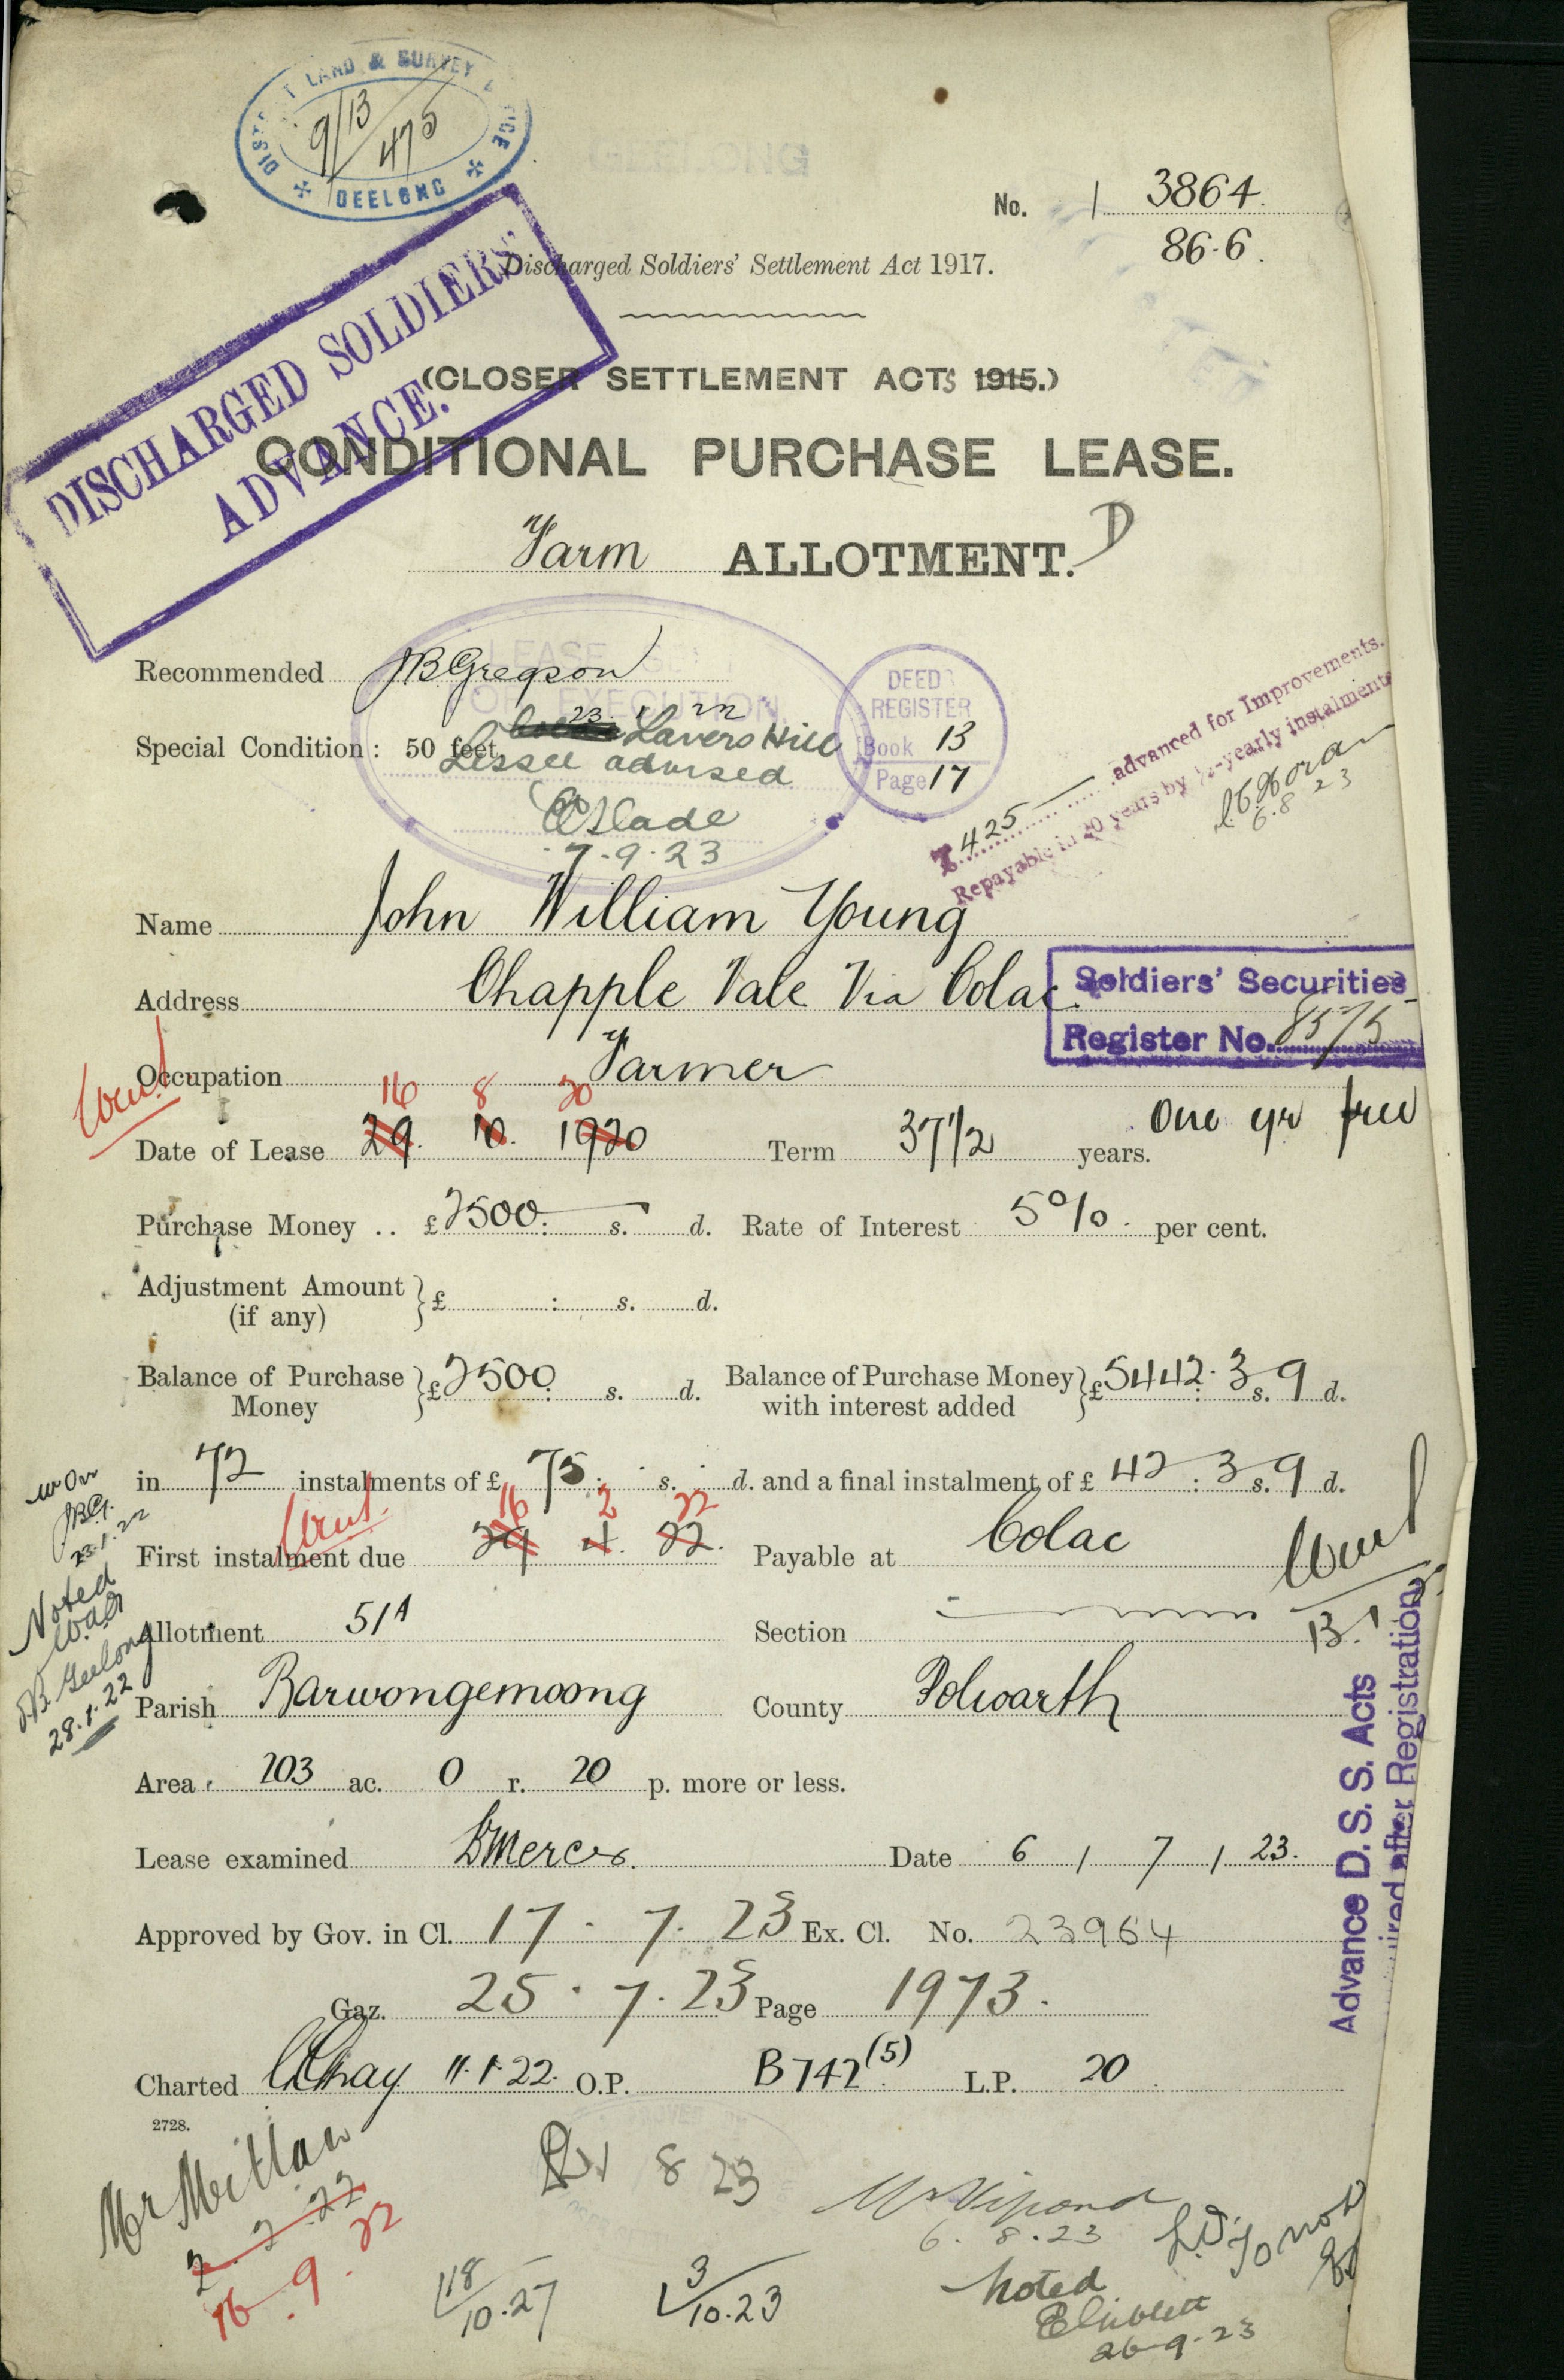 DISTRICT LAND & SURVEY OFFICE
9/13/475
GEELONG
GEELONG
No. 3864.
86.6.
Discharged Soldiers' Settlement Act 1917.
(CLOSER SETTLEMENT ACTS 1915.)
DISCHARGED SOLDIERS'
ADVANCE.
CONDITIONAL PURCHASE LEASE.
Farm ALLOTMENT. D
Recommended JBGregson
LEASE SENT
FOR EXECUTION
23 1 22
Special Condition: 50 feet Lavers Hill
Lessee advised
CSlade
7.9.23
DEED
REGISTER
Book 13
Page 17
£425 advanced for Improvements.
Repayable in 20 years by ½-yearly instalments
6.8.23
Name John William Young
Address Chapple Vale Via Colac
Soldiers' Securities
Register No. 8575
Occupation Farmer
16 8 20
Date of Lease 29. 10. 1920 Term 37 1/2 years. One yr free
Purchase Money .. £2500: s. d. Rate of Interest 5% per cent.
Adjustment Amount (if any) £ : s. d.
Balance of Purchase Money £2500: s. d. Balance of Purchase Money with interest added £5442.3 s. 9 d.
in 72 instalments of £75: s. d. and a final instalment of £42:3 s. 9 d.
JBG.
23.1.22
16 2 22
First instalment due 29 4. 22. Payable at Colac
Noted
Geelong
28.1.22
Allotment 51A Section
13.1
Parish Barwongemoong County Polwarth
Area 203 ac. 0 r. 20 p. more or less.
Lease examined DMercer. Date 6 / 7 / 23.
Approved by Gov. in Cl. 17. 7. 23 Ex. Cl. No. 23964
Gaz. 25. 7. 23 Page 1973.
Charted 11.1.22. O.P. B742(5) L.P. 20
Advance D. S. S. Acts
after Registration
2728.
Mr Meitlan
2 2 22
16 9. 22
8 23
Mr Vipond
6. 8. 23
18/10.27
3/10.23
L.D. To note
Noted
26-9-23